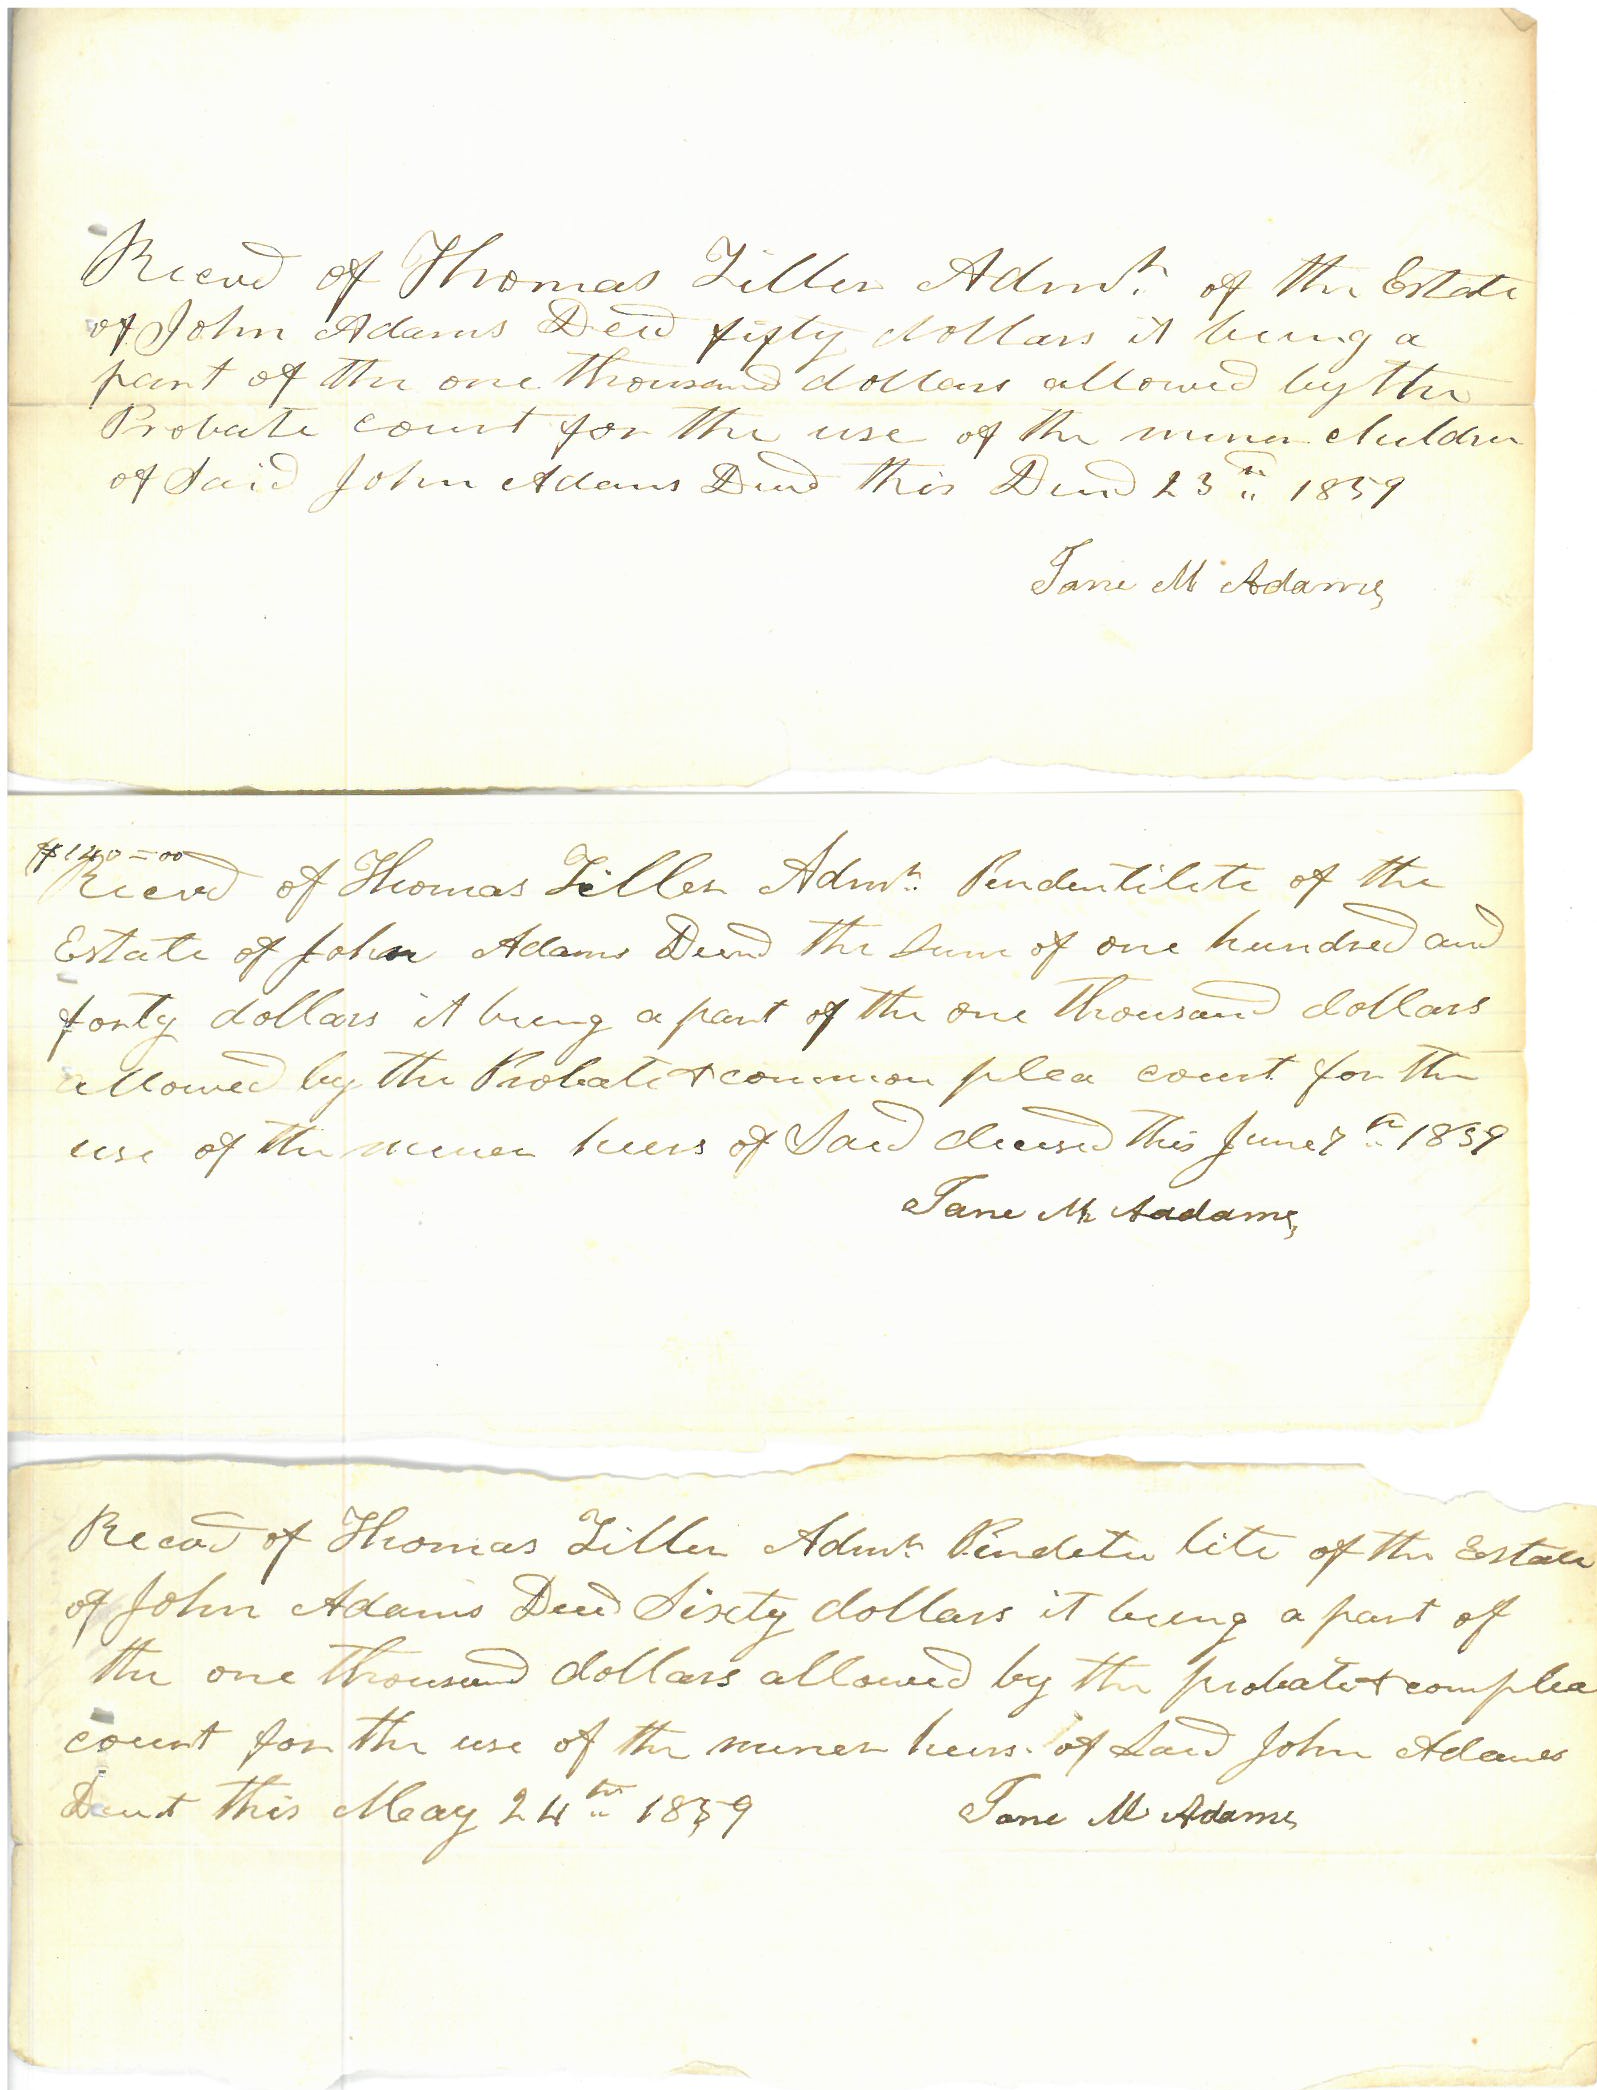 Riecvd of Thomas Tiller Admr. of the Estate
of John Adams Decd fifty dollars it being a
part of the one thousand dollars allowed by the
Probate court for the use of the miner children
of Said John Adams Decd this 23rd 1859
Jane M Adams
$140=00
Riecvd of Thomas Tiller Admr. Pendentilite of the
Estate of John Adams Decd the Sum of one hundred and
forty dollars it being a part of the one thousand dollars
allowed by the Probate & common plea court for the
use of the miner heirs of Said decesd this June 7th 1859
Jane M Aadams
Recevd of Thomas Tiller Admr Pendete lite of the Estate
of John Adams Decd Sixty dollars it being a part of
the one thousand dollars allowed by the probate & complea
court for the use of the miner heirs of Said John Adams
this May 24th 1859 Jane M Adams